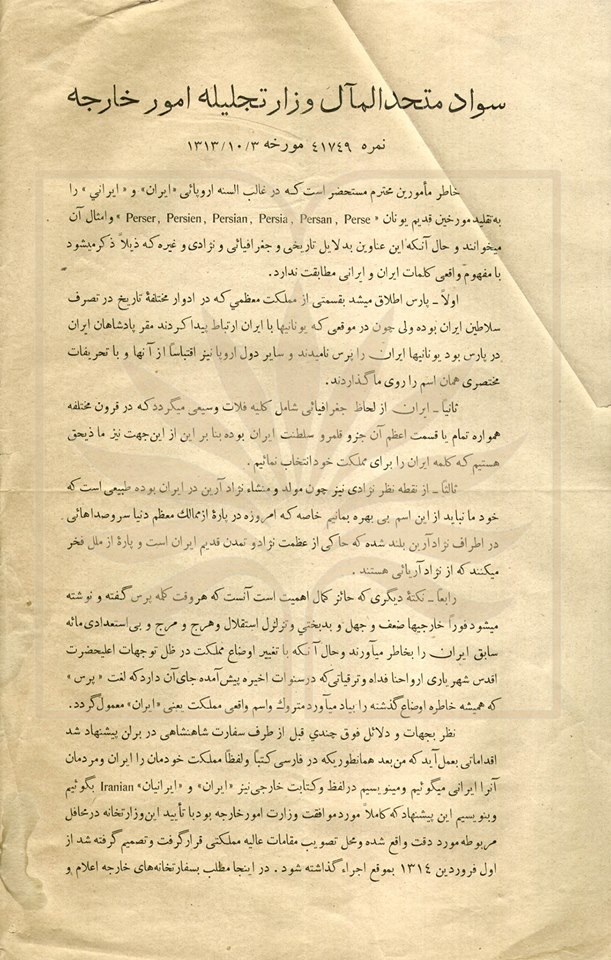 سواد متحدالمآل وزارتجلیله امور خارجه
نمره ٤١٧٤٩ مورخه ١٣١٣/١٠/٣
خاطر مأمورین محترم مستحضر است که در غالب السنه اروپائی «ایران» و «ایرانی» را
به تقلید مورخین قدیم یونان « Perser, Persien, Persian, Persia, Persan, Perse » وامثال آن
میخوانند و حال آنکه این عناوین بدلایل تاریخی و جغرافیائی و نژادی و غیره که ذیلاً ذکرمیشود
با مفهوم واقعی کلمات ایران و ایرانی مطابقت ندارد.
اولاً ـ پارس اطلاق میشد بقسمتی از مملکت معظمی که در ادوار مختلفهٔ تاریخ در تصرف
سلاطین ایران بوده ولی چون در موقعی که یونانیها با ایران ارتباط پیدا کردند مقر پادشاهان ایران
در پارس بود یونانیها ایران را پرس نامیدند و سایر دول اروپا نیز اقتباساً از آنها و با تحریفات
مختصری همان اسم را روی ما گذاردند.
ثانیاً ـ ایران از لحاظ جغرافیائی شامل کلیه فلات وسیعی میگردد که در قرون مختلفه
همواره تمام یا قسمت اعظم آن جزو قلمرو سلطنت ایران بوده بنا بر این از این جهت نیز ما ذیحق
هستیم که کلمه ایران را برای مملکت خود انتخاب نمائیم .
ثالثاً ـ از نقطه نظر نژادی نیز چون مولد و منشاء نژاد آرین در ایران بوده طبیعی است که
خود ما نباید از این اسم بی بهره بمانیم خاصه که امروزه در پارهٔ ازممالك معظم دنیا سروصداهائی
در اطراف نژاد آرین بلند شده که حاکی از عظمت نژادو تمدن قدیم ایران است و پارهٔ از ملل فخر
میکنند که از نژاد آریائی هستند .
رابعاً ـ نکتهٔ دیگری که حائز کمال اهمیت است آنست که هر وقت کلمه پرس گفته و نوشته
میشود فوراً خارجیها ضعف و جهل و بدبختی وتزلزل استقلال وهرج و مرج و بی استعدادی مائه
سابق ایران را بخاطر میآورند وحال آنکه با تغییر اوضاع مملکت در ظل توجهات اعلیحضرت
اقدس شهریاری ارواحنا فداه وترقیاتی که درسنوات اخیره پیش آمده جای آن دارد که لغت «پرس»
که همیشه خاطره اوضاع گذشته را بیاد میآورد متروك واسم واقعی مملکت یعنی «ایران» معمول گردد.
نظر بجهات و دلائل فوق چندی قبل از طرف سفارت شاهنشاهی در برلن پیشنهاد شد
اقداماتی بعمل آید که من بعد همانطوریکه در فارسی کتباً ولفظاً مملکت خودمان را ایران ومردمان
آنرا ایرانی میگوئیم ومینویسیم درلفظ وکتابت خارجی نیز «ایران» و «ایرانیان» Iranian بگوئیم
وبنویسیم این پیشنهاد که کاملاً مورد موافقت وزارت امورخارجه بود با تأیید این وزارتخانه درمحافل
مربوطه مورد دقت واقع شده ومحل تصویب مقامات عالیه مملکتی قرار گرفت و تصمیم گرفته شد از
اول فروردین ١٣١٤ بموقع اجراء گذاشته شود . در اینجا مطلب بسفارتخانه‌های خارجه اعلام و